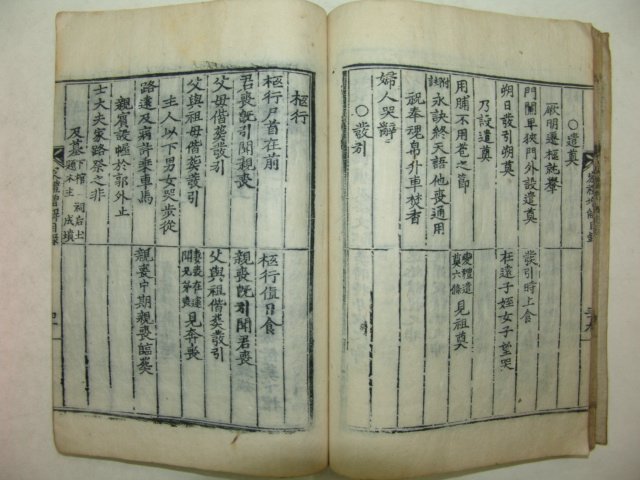 ○遣奠
厥明遷柩就轝　發引時上食
門闌卑狹門外設遣奠
朔日發引朔奠　在遠子姪女子望哭
乃設遣奠　變禮遣奠六條見祖奠
用脯不用苞之節
附註永訣終天語他喪通用
祝奉魂帛升車焚香
婦人哭辭
○發引
柩行
柩行尸首在前　柩行值日食
君喪旣引聞親喪　親喪旣引聞君喪
父母偕葬發引　父與祖偕葬發引
父與祖母偕葬發引　喪在途聞兄弟喪見奔喪
主人以下男女哭步從
路遠及病許乘車馬　親喪中期親喪臨葬
親賓設幄於郭外止
士大夫家路祭之非
及墓下棺 祠后土 題木主 成墳